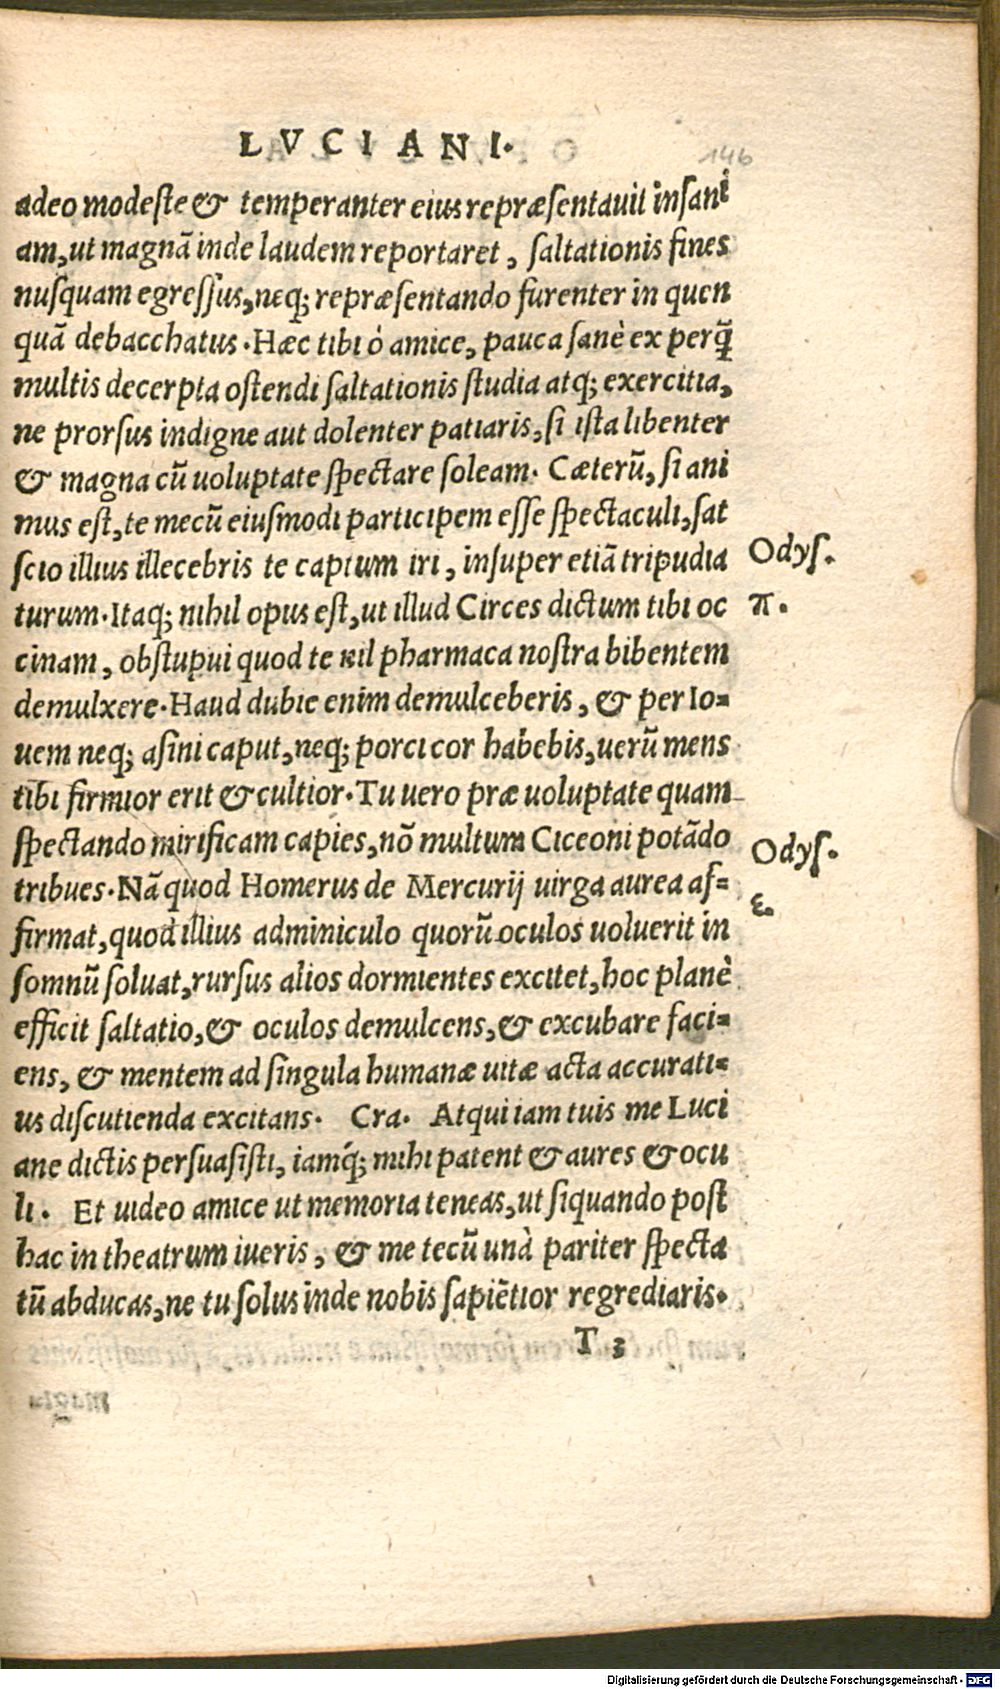 LVCIANI.
146
adeo modeste & temperanter eius repræsentauit insani
am, ut magnã inde laudem reportaret, saltationis fines
nusquam egressus, neq; repræsentando furenter in quen
quã debacchatus. Hæc tibi ó amice, pauca sanè ex perq̃
multis decerpta ostendi saltationis studia atq; exercitia,
ne prorsus indigne aut dolenter patiaris, si ista libenter
& magna cũ uoluptate spectare soleam. Cæterũ, si ani
mus est, te mecũ eiusmodi participem esse spectaculi, sat
scio illius illecebris te captum iri, insuper etiã tripudia
turum. Itaq; nihil opus est, ut illud Circes dictum tibi oc
cinam, obstupui quod te nil pharmaca nostra bibentem
demulxere. Haud dubie enim demulceberis, & per Io=
uem neq; asini caput, neq; porci cor habebis, uerũ mens
tibi firmior erit & cultior. Tu uero præ uoluptate quam
spectando mirificam capies, nõ multum Ciceoni potãdo
tribues. Nã quod Homerus de Mercurij uirga aurea af=
firmat, quod illius adminiculo quorũ oculos uoluerit in
somnũ soluat, rursus alios dormientes excitet, hoc planè
efficit saltatio, & oculos demulcens, & excubare faci=
ens, & mentem ad singula humanæ uitæ acta accurati=
us discutienda excitans. Cra. Atqui iam tuis me Luci
ane dictis persuasisti, iamq́; mihi patent & aures & ocu
li. Et uideo amice ut memoria teneas, ut siquando post
hac in theatrum iueris, & me tecũ unà pariter specta
tũ abducas, ne tu solus inde nobis sapiẽtior regrediaris.
T 3
Odys.
π.
Odys.
ε.
Digitalisierung gefördert durch die Deutsche Forschungsgemeinschaft - DFG